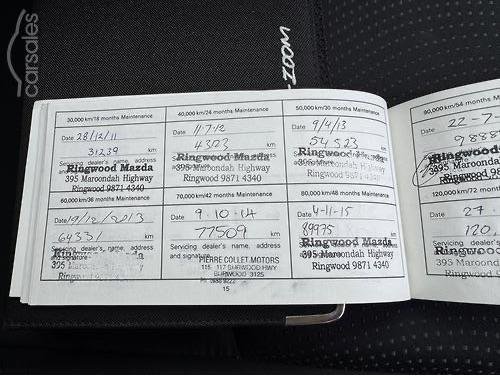 carsales
ZOOM
30,000 km/18 months Maintenance
Date 28/12/11
31239 km
Servicing dealer's name, address
Ringwood Mazda
395 Maroondah Highway
Ringwood 9871 4340
40,000 km/24 months Maintenance
Date 11.7.12
km
Servicing dealer's name, address
Ringwood Mazda
395 Maroondah Highway
Ringwood 9871 4340
50,000 km/30 months Maintenance
Date 9/4/13
54323 km
Servicing dealer's name, address
Ringwood Mazda
395 Maroondah Highway
Ringwood 9871 4340
90,000 km/54
Date 22-7-
Servicing
Ringwood
60,000 km/36 months Maintenance
Date 19/12/2013
64331 km
Servicing dealer's name, address
and signature
395 Maroondah Highway
Ringwood 9871 4340
70,000 km/42 months Maintenance
Date 9-10-14
77509 km
Servicing dealer's name, address
and signature
PIERRE COLLET MOTORS
115-117 BURWOOD HWY
BURWOOD 3125
80,000 km/48 months Maintenance
Date 4-11-15
89975 km
Ringwood Mazda
395 Maroondah Highway
Ringwood 9871 4340
120,000 km/72 month
Date 27.
120,
Servicing
Ringwood
395 Maroond
Ringwood
15